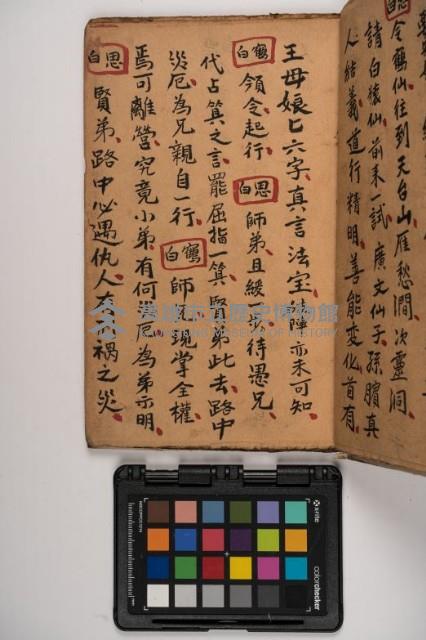 白鶴
令鶴仙往到天台山雁愁澗次靈洞
請白猿仙前來一試廣文仙子孫臏真
人結義道行精明善能變化首有
王母娘七六字真言法宝 亦未可知
白鶴 領令起行 白思 師弟且緩 待愚兄
代占算之言罷屈指一算賢弟此去路中
災厄為兄親自一行 白鶴 師 掌全權
焉可離營究竟小弟有何 厄為弟示明
白思 賢弟路中必遇仇人 禍之災
高雄市立歷史博物館
KAOHSIUNG MUSEUM OF HISTORY
x-rite
colorchecker